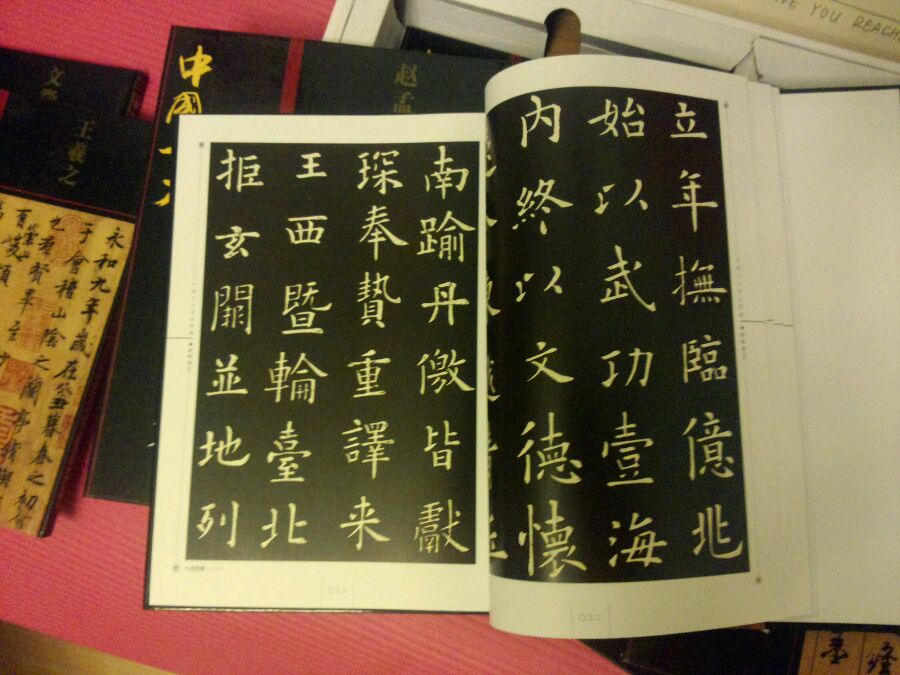 立年撫臨億兆
始以武功壹海
内終以文德懷
南踰丹徼皆獻
琛奉贄重譯来
王西暨輪臺北
拒玄闕並地列
中國
赵孟
王羲之
文
永和九年歲在癸丑暮春之初
于會稽山陰之蘭亭
也羣賢畢至
YOU REACH